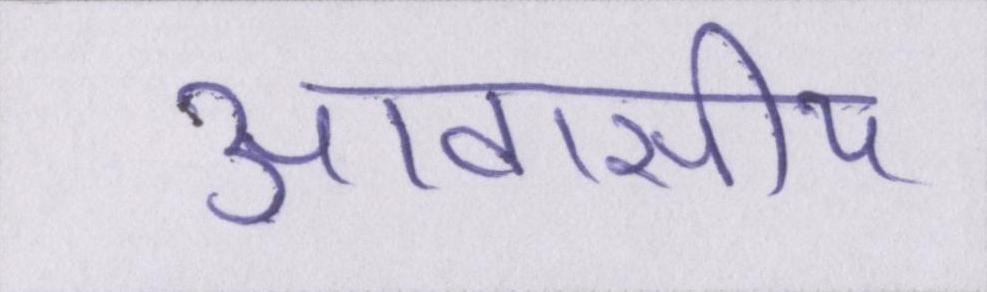 आवासीय